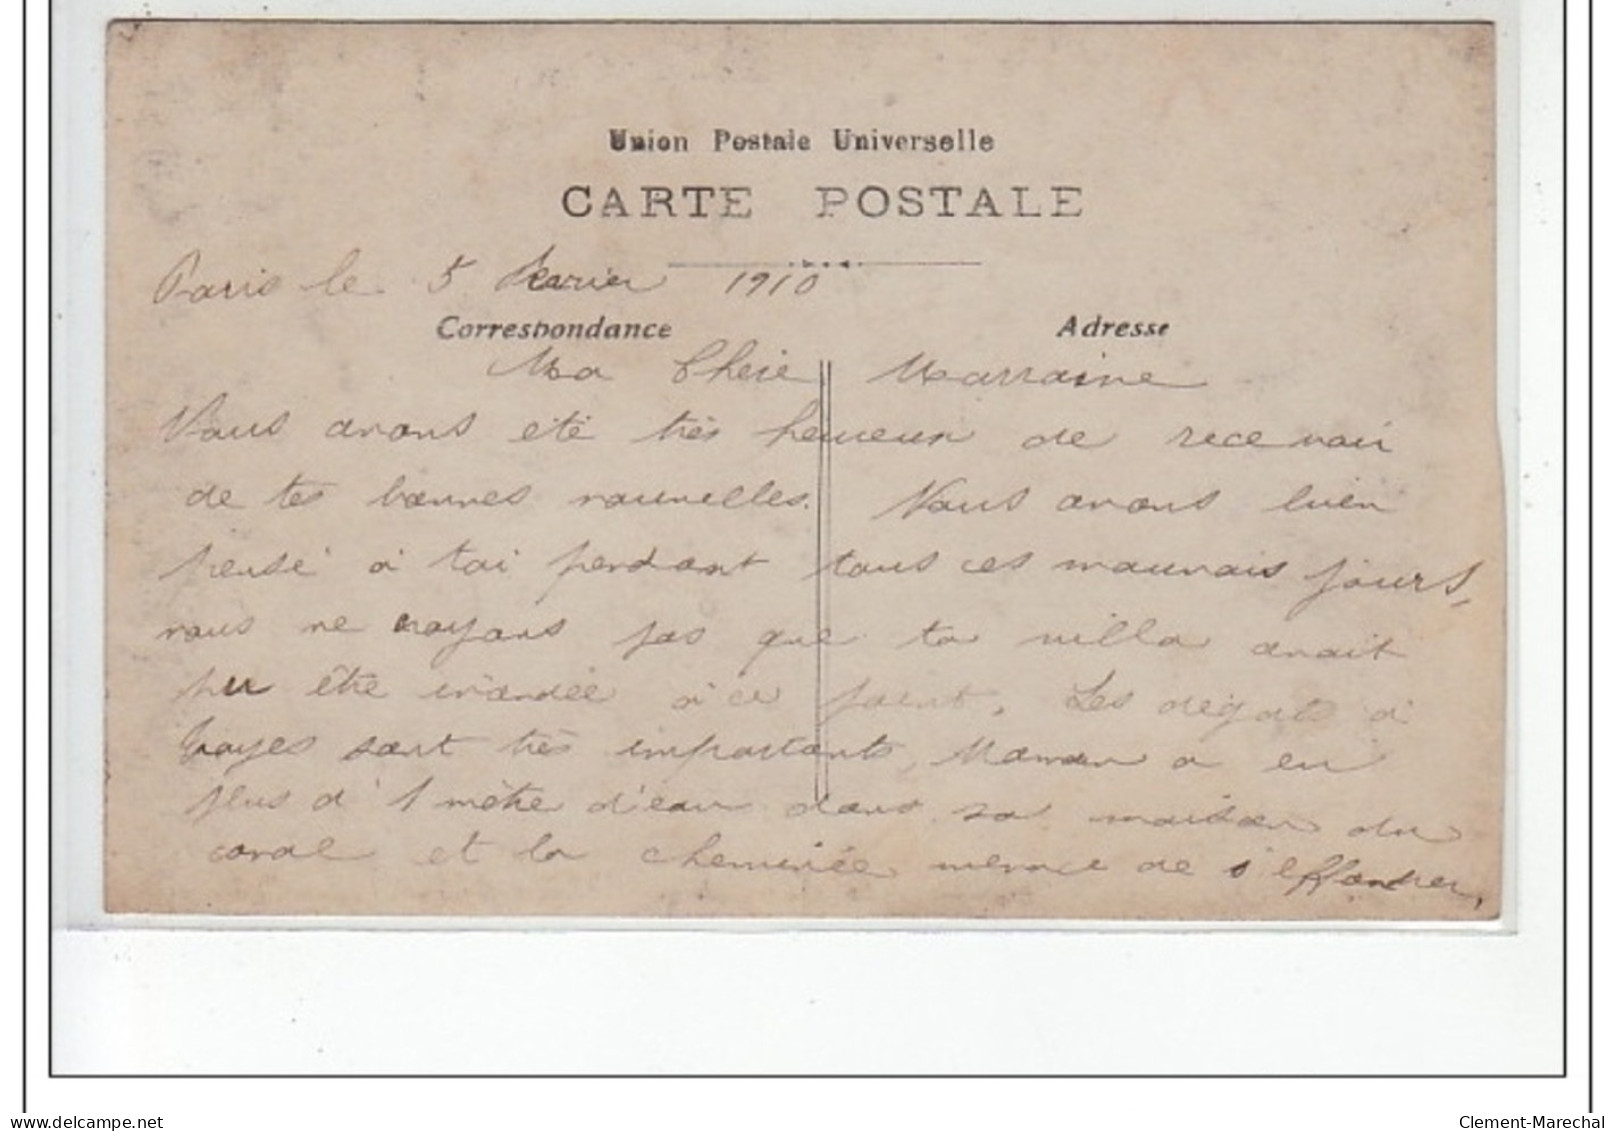 Union Postale Universelle
CARTE POSTALE
Paris le 5 Fevrier 1910
Correspondance
Adresse
Ma Chère Marraine
Nous avons été très heureux de recevoir
de tes bonnes nouvelles. Nous avons bien
pensé à toi pendant tous ces mauvais jours,
nous ne croyions pas que ta villa avait
pu être inondée à ce point. Les dégats à
Troyes sont très importants, Maman a eu
plus d'1 mètre d'eau dans sa maison du
canal et la cheminée menace de s'effondrer,
delcampe.net
Clement-Marechal